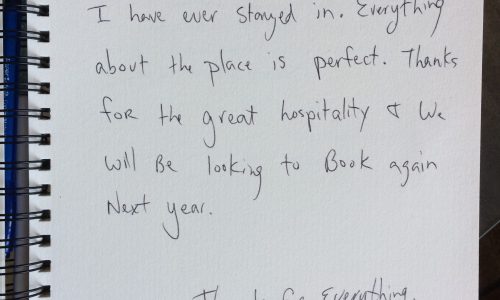 I have ever stayed in. Everything
about the place is perfect. Thanks
for the great hospitality & We
will Be looking to Book again
Next year.
Everything.